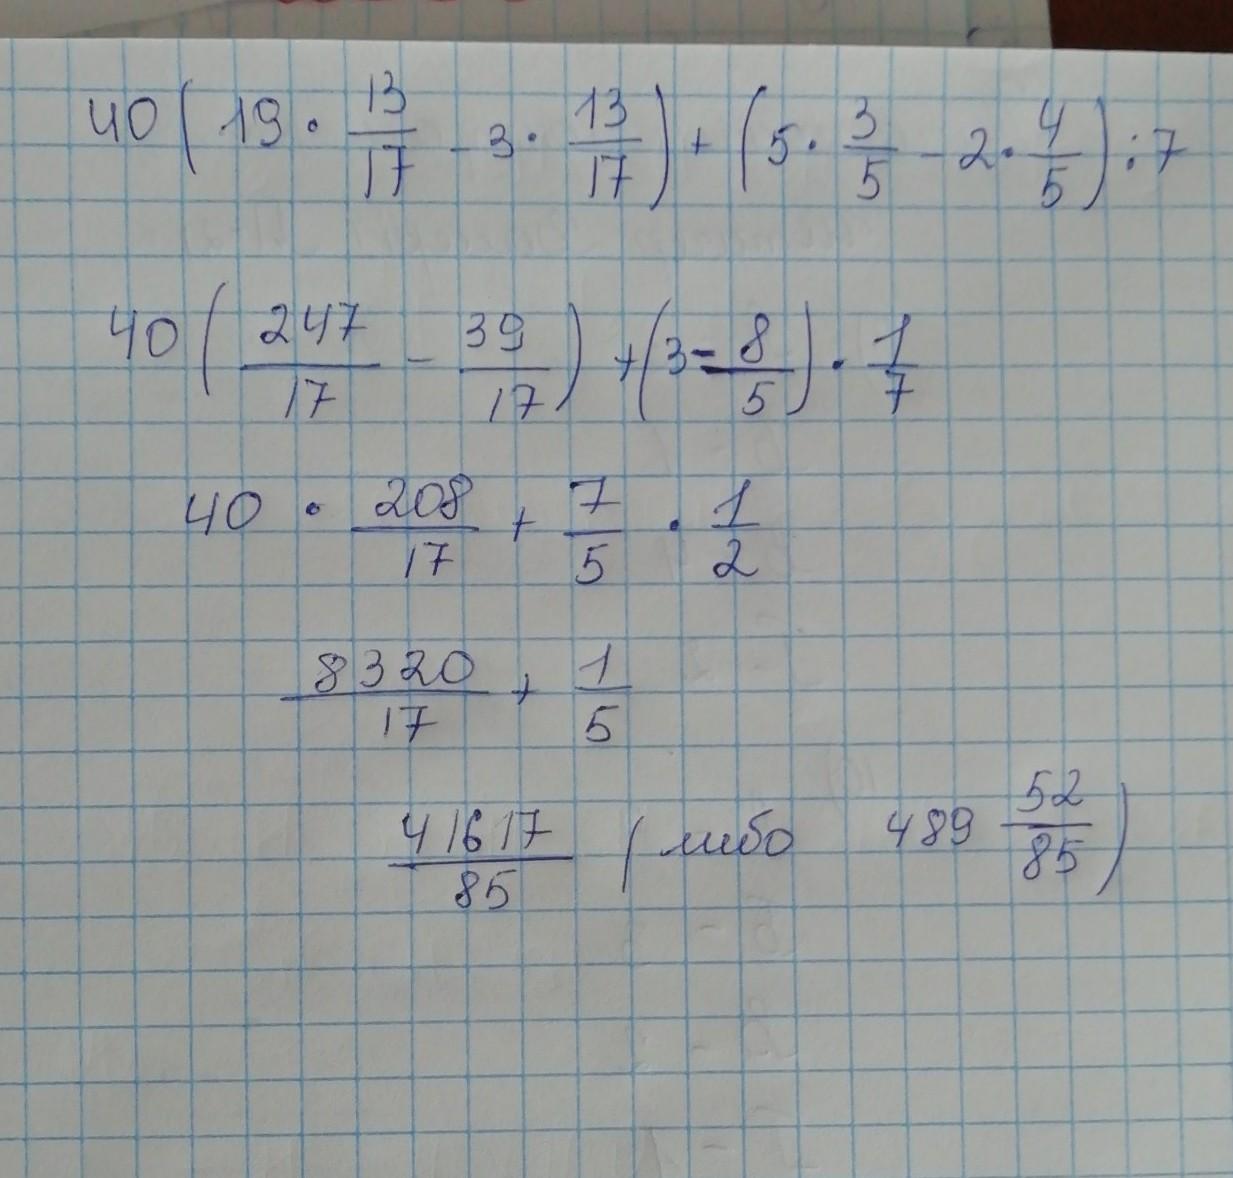 40(19 · 13/17 - 3 · 13/17) + (5 · 3/5 - 2 · 4/5) : 7
40(247/17 - 39/17) + (3 - 8/5) · 1/7
40 · 208/17 + 7/5 · 1/2
8320/17 + 1/5
41617/85 (либо 489 52/85)